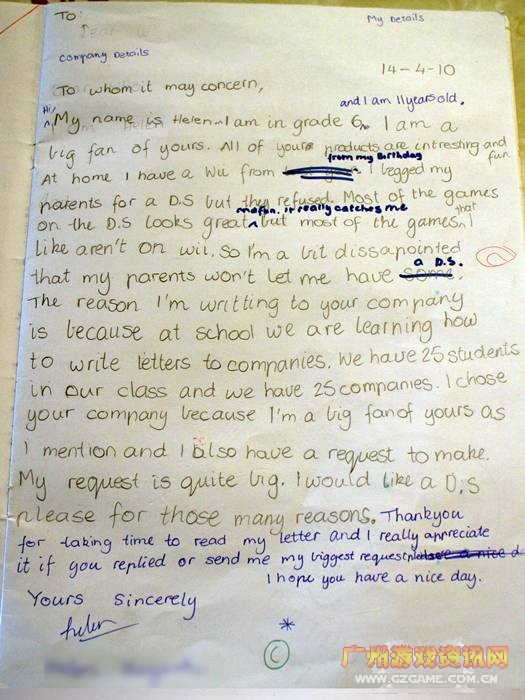 To
My Details
Dear
Company Details
14-4-10
To whom it may concern,
and I am 11 years old.
Hi, My name is Helen I am in grade 6. I am a
big fan of yours. All of your products are intresting and fun
from my Birthday
At home I have a Wii from I begged my
parents for a D.S but they refused. Most of the games
it really catches me
on the D.S looks great but most of the games that I
like aren't on wii. So I'm a bit dissapointed
a D.S.
that my parents won't let me have some.
The reason I'm writting to your company
is because at school we are learning how
to write letters to companies. We have 25 students
in our class and we have 25 companies. I chose
your company because I'm a big fan of yours as
I mention and I also have a request to make.
My request is quite big. I would like a D.S
please for those many reasons. Thankyou
for taking time to read my letter and I really appreciate
it if you replied or send me my biggest request have a nice d
I hope you have a nice day.
Yours Sincerely
helen
*
C
广州游戏资讯网
WWW.GZGAME.COM.CN